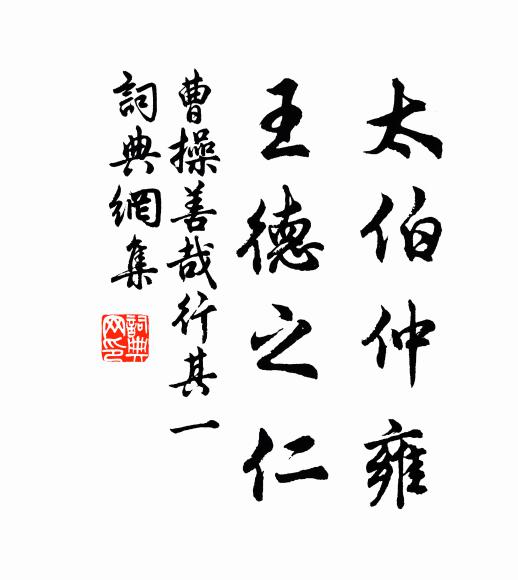 太伯仲雍
王德之仁
曹操善哉行其一
詞典網集
詞典
网印